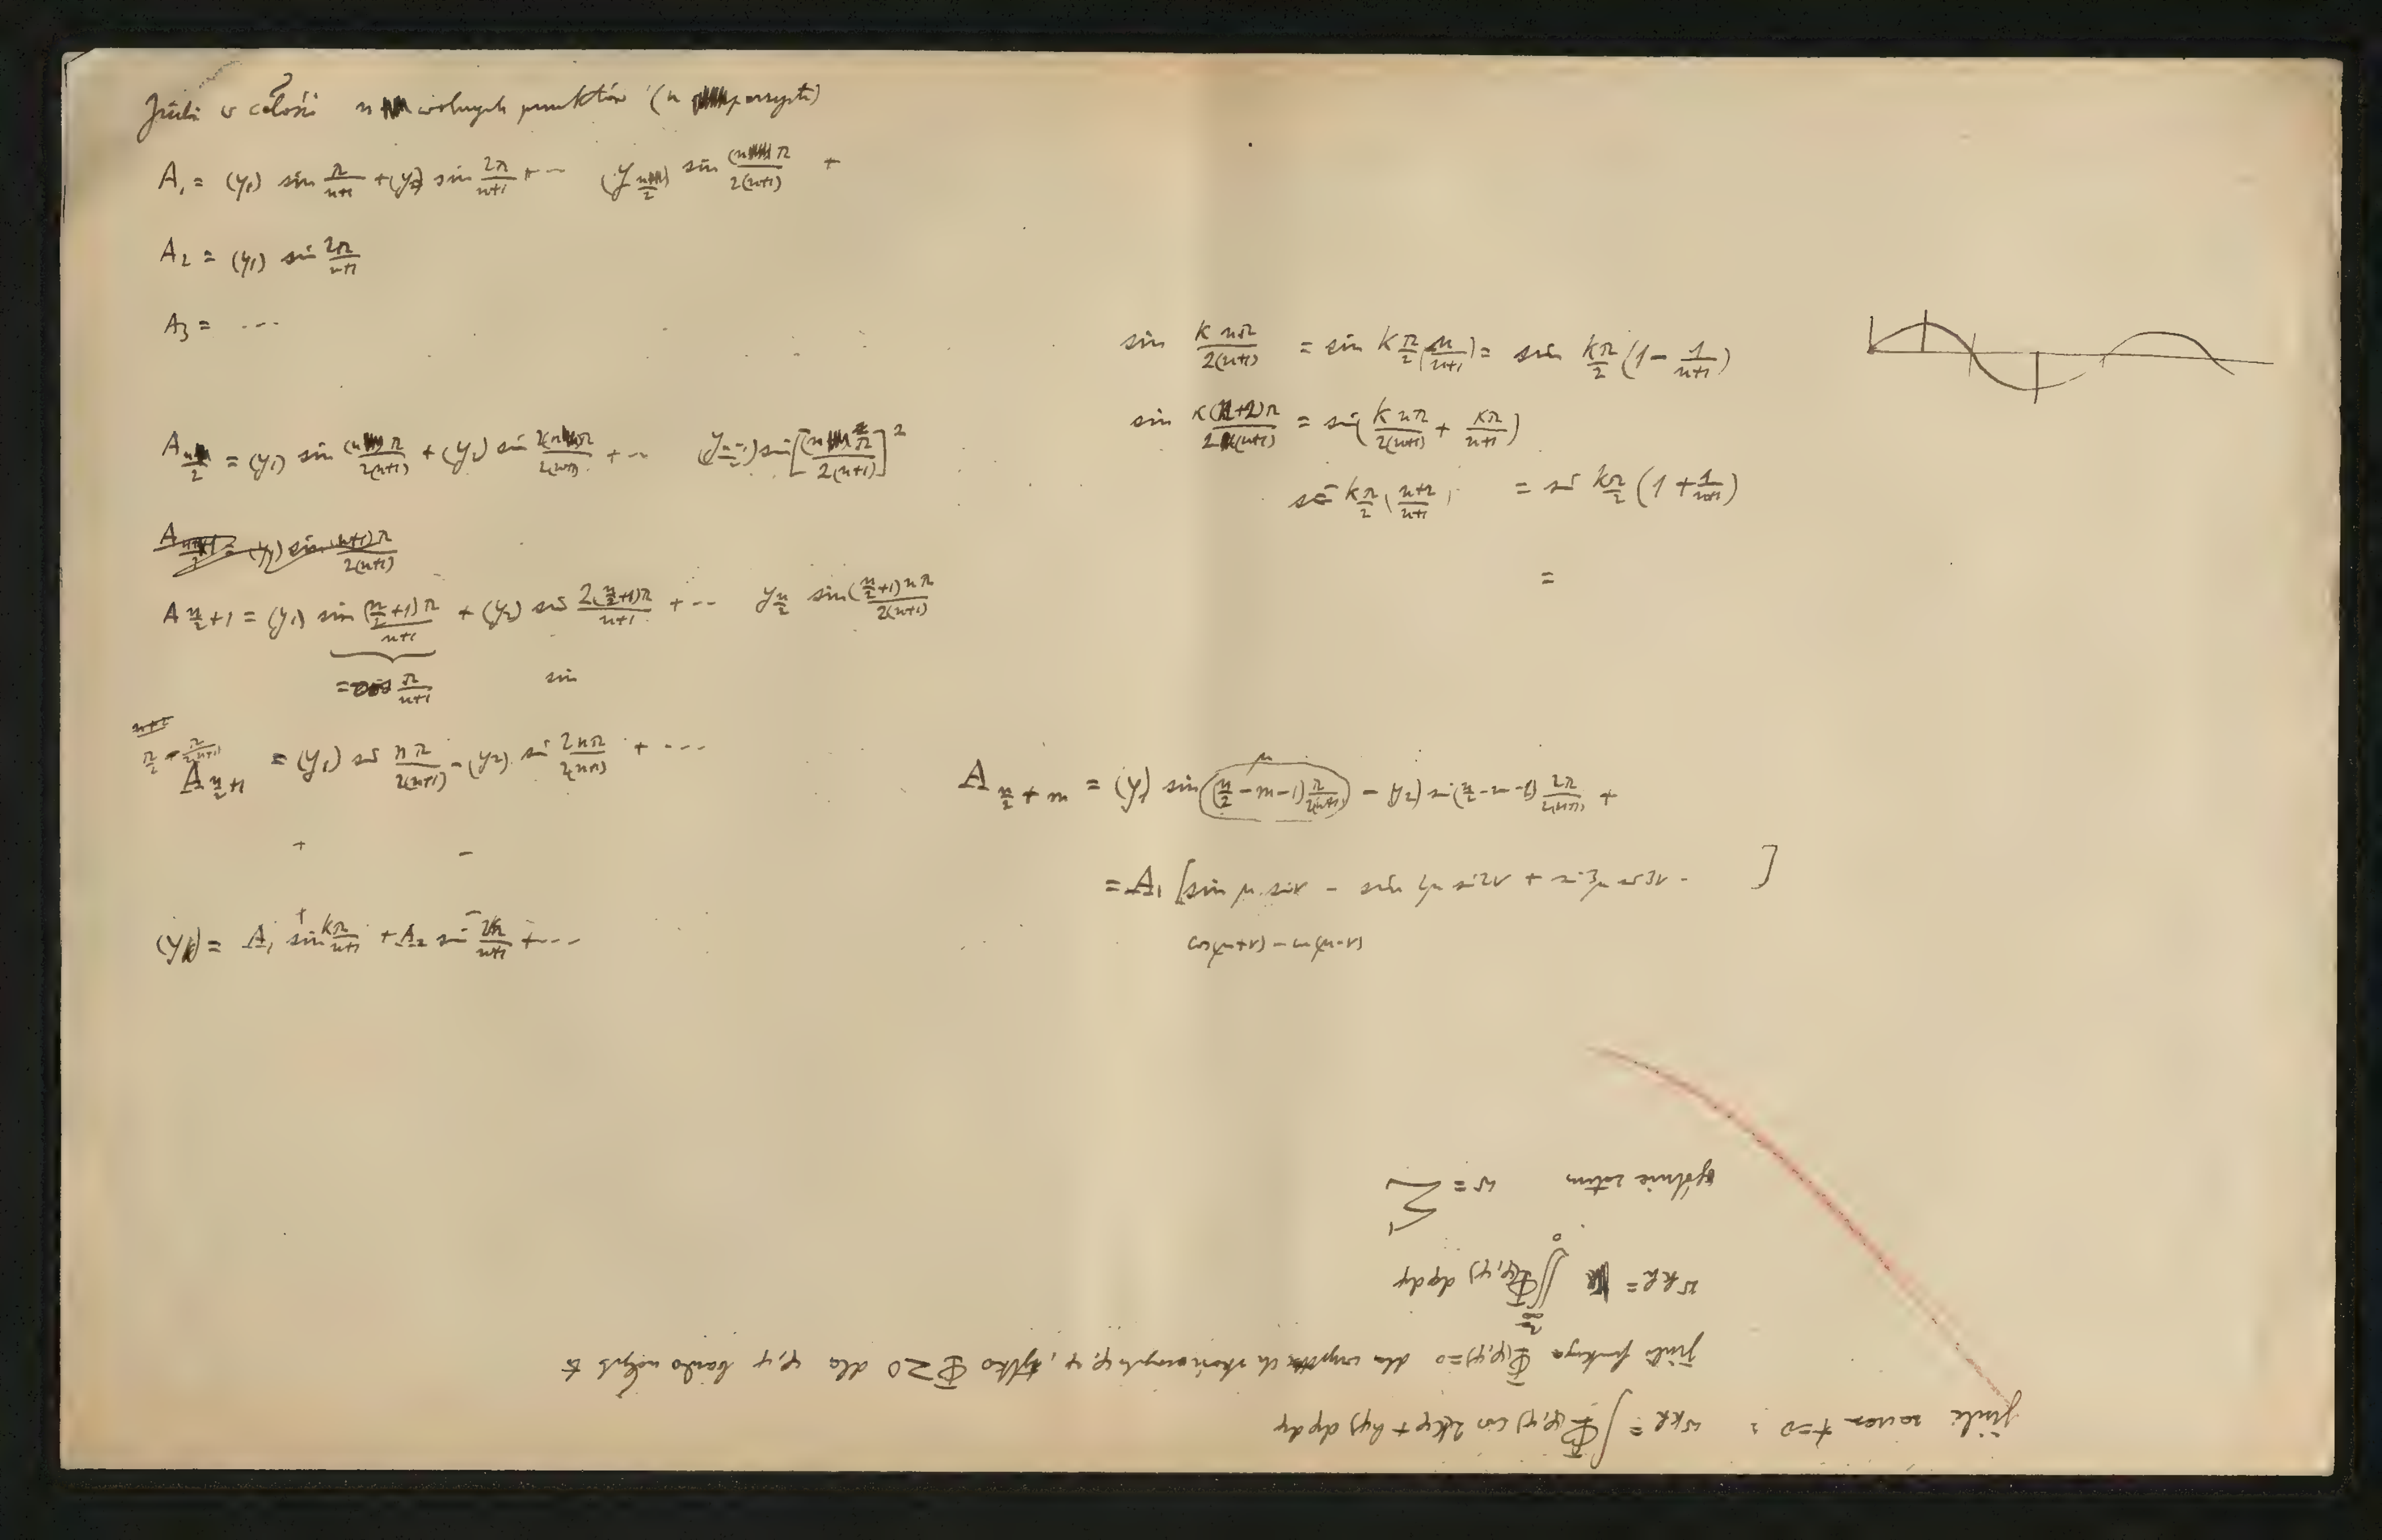 Jeśli w całości n wolnych punktów (n parzyste)
A₁ = (y₁) sin π/(n+1) + (y₂) sin 2π/(n+1) + ··· (y n/2) sin nπ/2(n+1) +
A₂ = (y₁) sin 2π/(n+1)
A₃ = ···
A n/2 = (y₁) sin nπ/2(n+1) + (y₂) sin 2nπ/2(n+1) + ··· sin [ π/2(n+1) ]²
(y₁) sin (n+1)π/2(n+1)
A n/2+1 = (y₁) sin (n/2+1)π/(n+1) + (y₂) sin 2(n/2+1)π/(n+1) + ··· y n/2 sin (n/2+1)nπ/2(n+1)
= π/(n+1) sin
A n/2+1 = (y₁) sin nπ/2(n+1) - (y₂) sin 2nπ/2(n+1) + ···
+ -
(yk) = A₁ sin kπ/(n+1) + A₂ sin 2k/(n+1) + ···
sin k nπ/2(n+1) = sin k π/2 (n/(n+1)) = sin kπ/2 (1 - 1/(n+1))
sin k(n+2)π/2(n+1) = sin(k nπ/2(n+1) + kπ/(n+1))
sin k π/2 (n+2/(n+1)) = sin kπ/2 (1 + 1/(n+1))
=
μ
A n/2 + m = (y₁) sin (n/2 - m - 1) π/2(n+1) - (y₂) sin (n/2 - m - 1) 2π/2(n+1) +
= A₁ [sin μ sin ν - sin 2μ sin 2ν + sin 3μ sin 3ν - ]
cos(μ+ν) - cos(μ-ν)
Jeśli znowu t=0 : w kh = ∫ Φ(φ,ψ) cos 2(kφ + hψ) dφ dψ
Jeśli funkcya Φ(φ,ψ) = 0 dla skończonych φ, ψ, tylko Φ ≥ 0 dla φ, ψ bardzo małych to
w kh = ∬ Φ(φ,ψ) dφ dψ
ogólnie zatem w = Σ